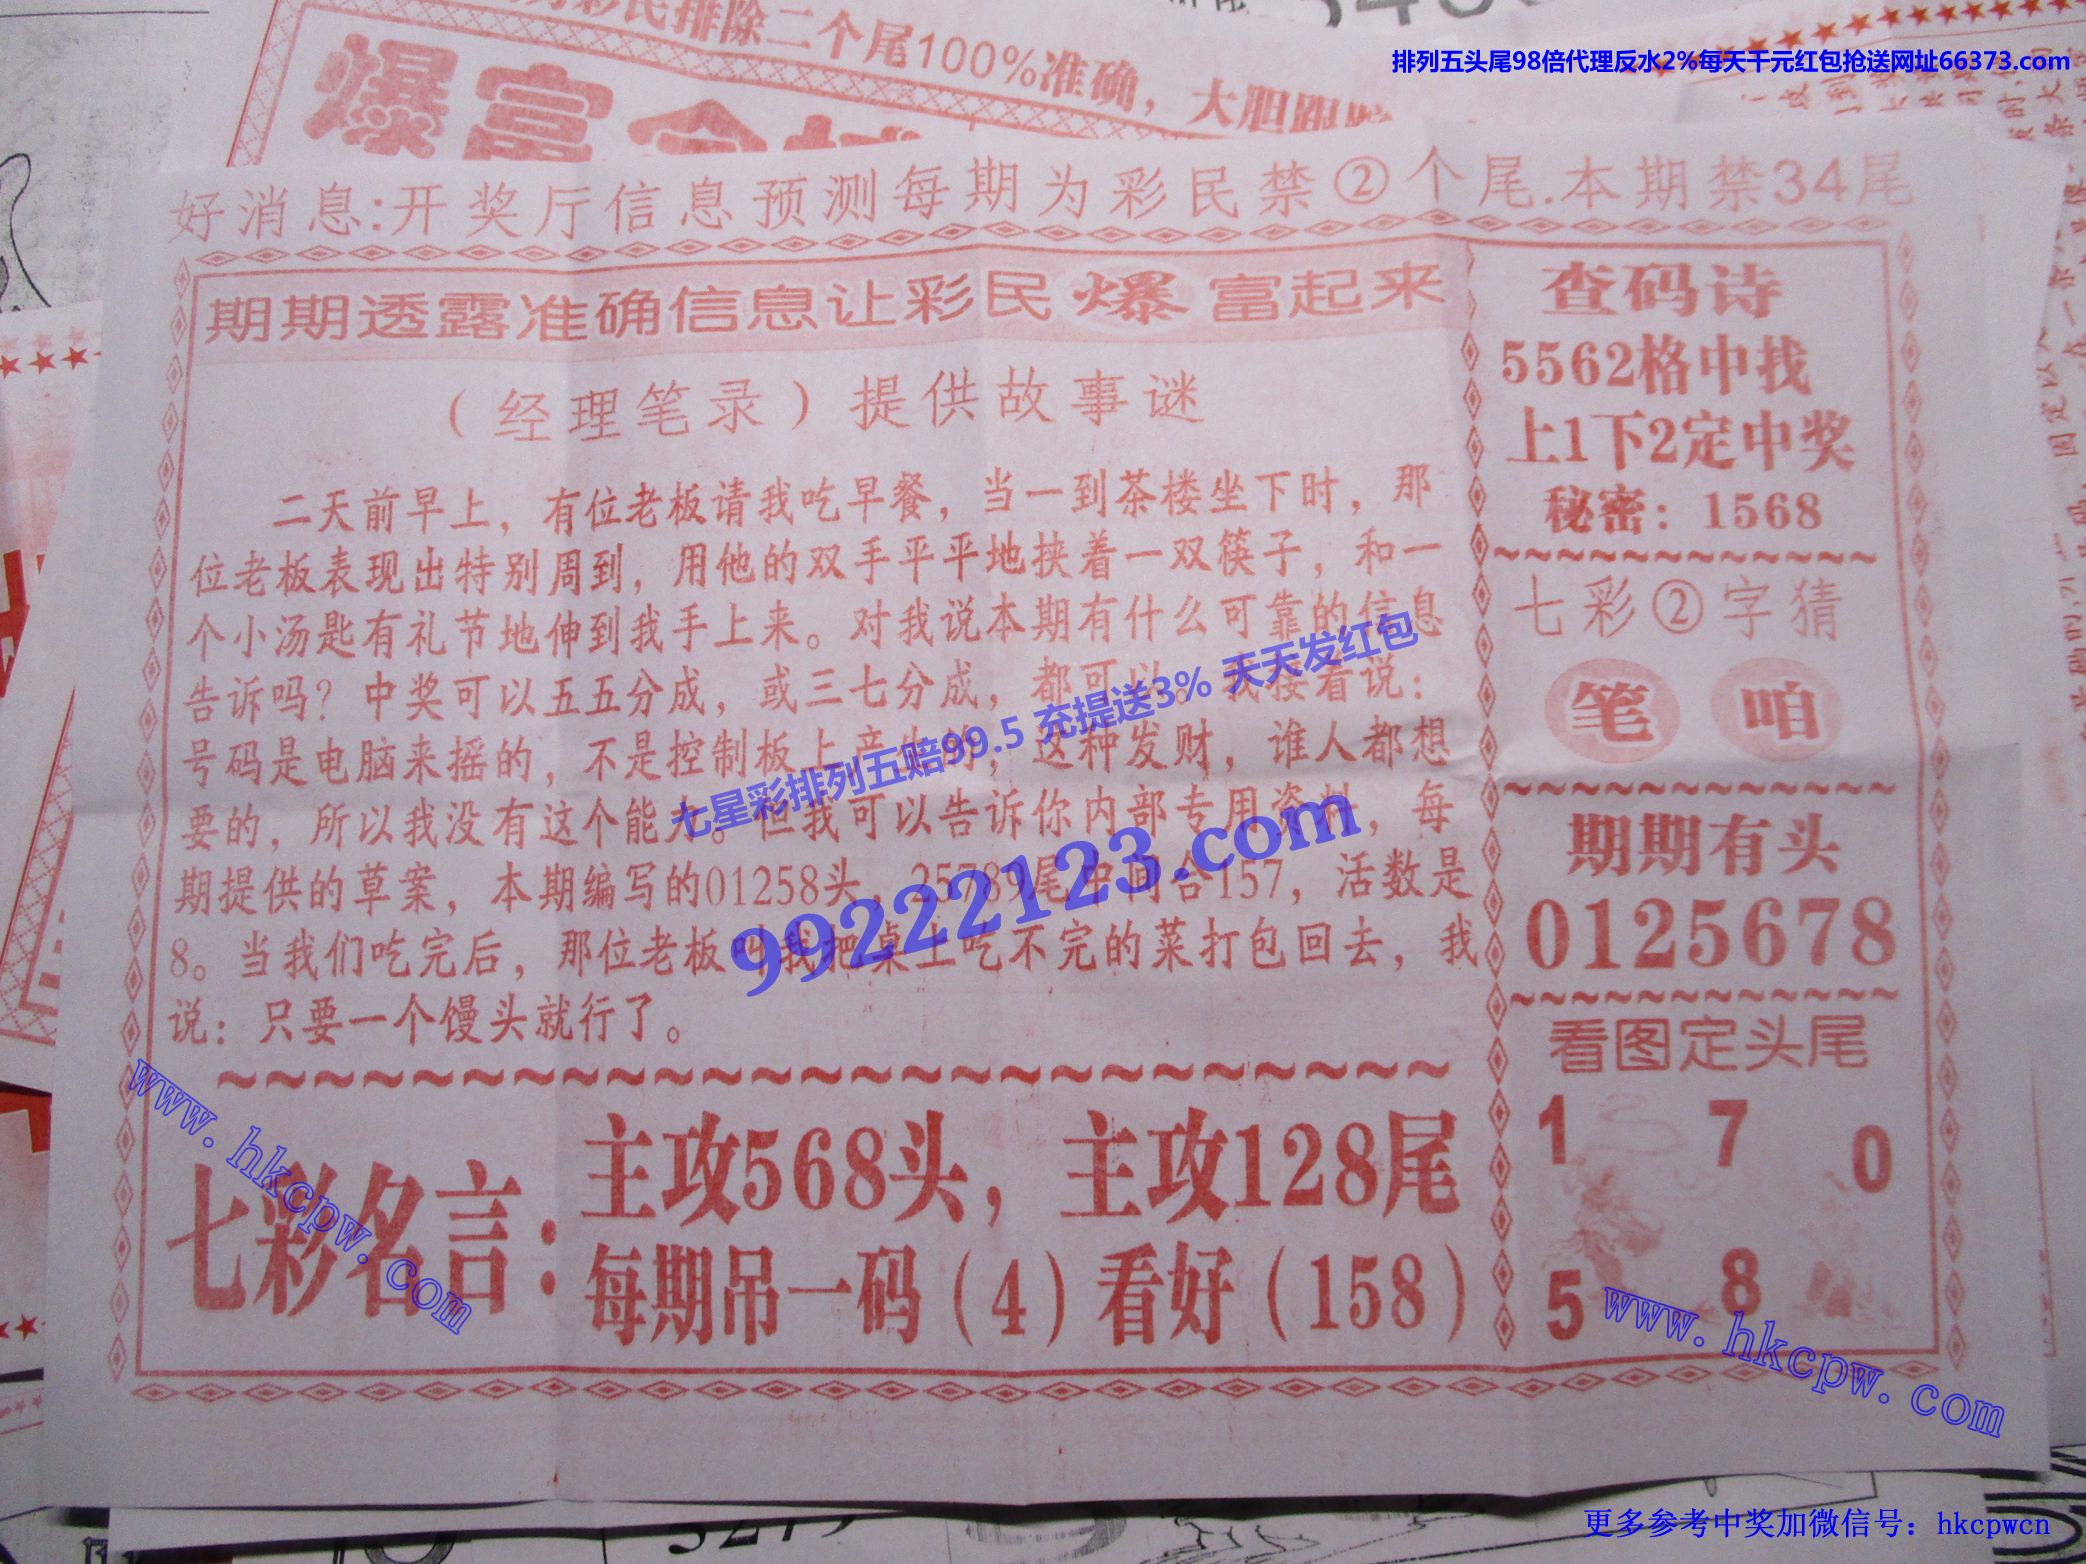 彩民排除二个尾100%准确，大胆跟踪
排列五头尾98倍代理反水2%每天千元红包抢送网址66373.com
爆富
好消息:开奖厅信息预测每期为彩民禁②个尾.本期禁34尾
期期透露准确信息让彩民爆富起来
（经理笔录）提供故事谜
二天前早上，有位老板请我吃早餐，当一到茶楼坐下时，那
位老板表现出特别周到，用他的双手平平地挟着一双筷子，和一
个小汤匙有礼节地伸到我手上来。对我说本期有什么可靠的信息
告诉吗？中奖可以五五分成，或三七分成，都可以。我接着说：
号码是电脑来摇的，不是控制板上产生的，这种发财，谁人都想
要的，所以我没有这个能力。但我可以告诉你内部专用资料，每
期提供的草案，本期编写的01258头，25789尾中间合157，活数是
8。当我们吃完后，那位老板叫我把桌上吃不完的菜打包回去，我
说：只要一个馒头就行了。
七彩名言：
主攻568头，主攻128尾
每期吊一码（4）看好（158）
查码诗
5562格中找
上1下2定中奖
秘密：1568
七彩②字猜
笔 咱
期期有头
0125678
看图定头尾
1 7 0
5 8
七星彩排列五赔99.5 充提送3% 天天发红包
99222123.com
www.hkcpw.com
www.hkcpw.com
更多参考中奖加微信号：hkcpwcn